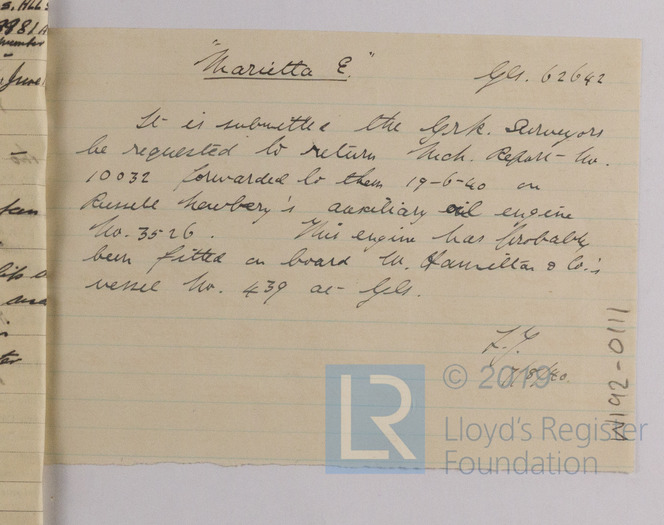 "Marietta E."
Gls. 62642
It is submitted the Grk. Surveyors
be requested to return Mch. Report No.
10032 forwarded to them 19-6-40 on
Russell Newbery's auxiliary oil engine
No. 3526. This engine has probably
been fitted on board W. Hamilton & Co.'s
vessel No. 439 at Gls.
/8/40.
W192-0111
LR
© 2019
Lloyd's Register
Foundation